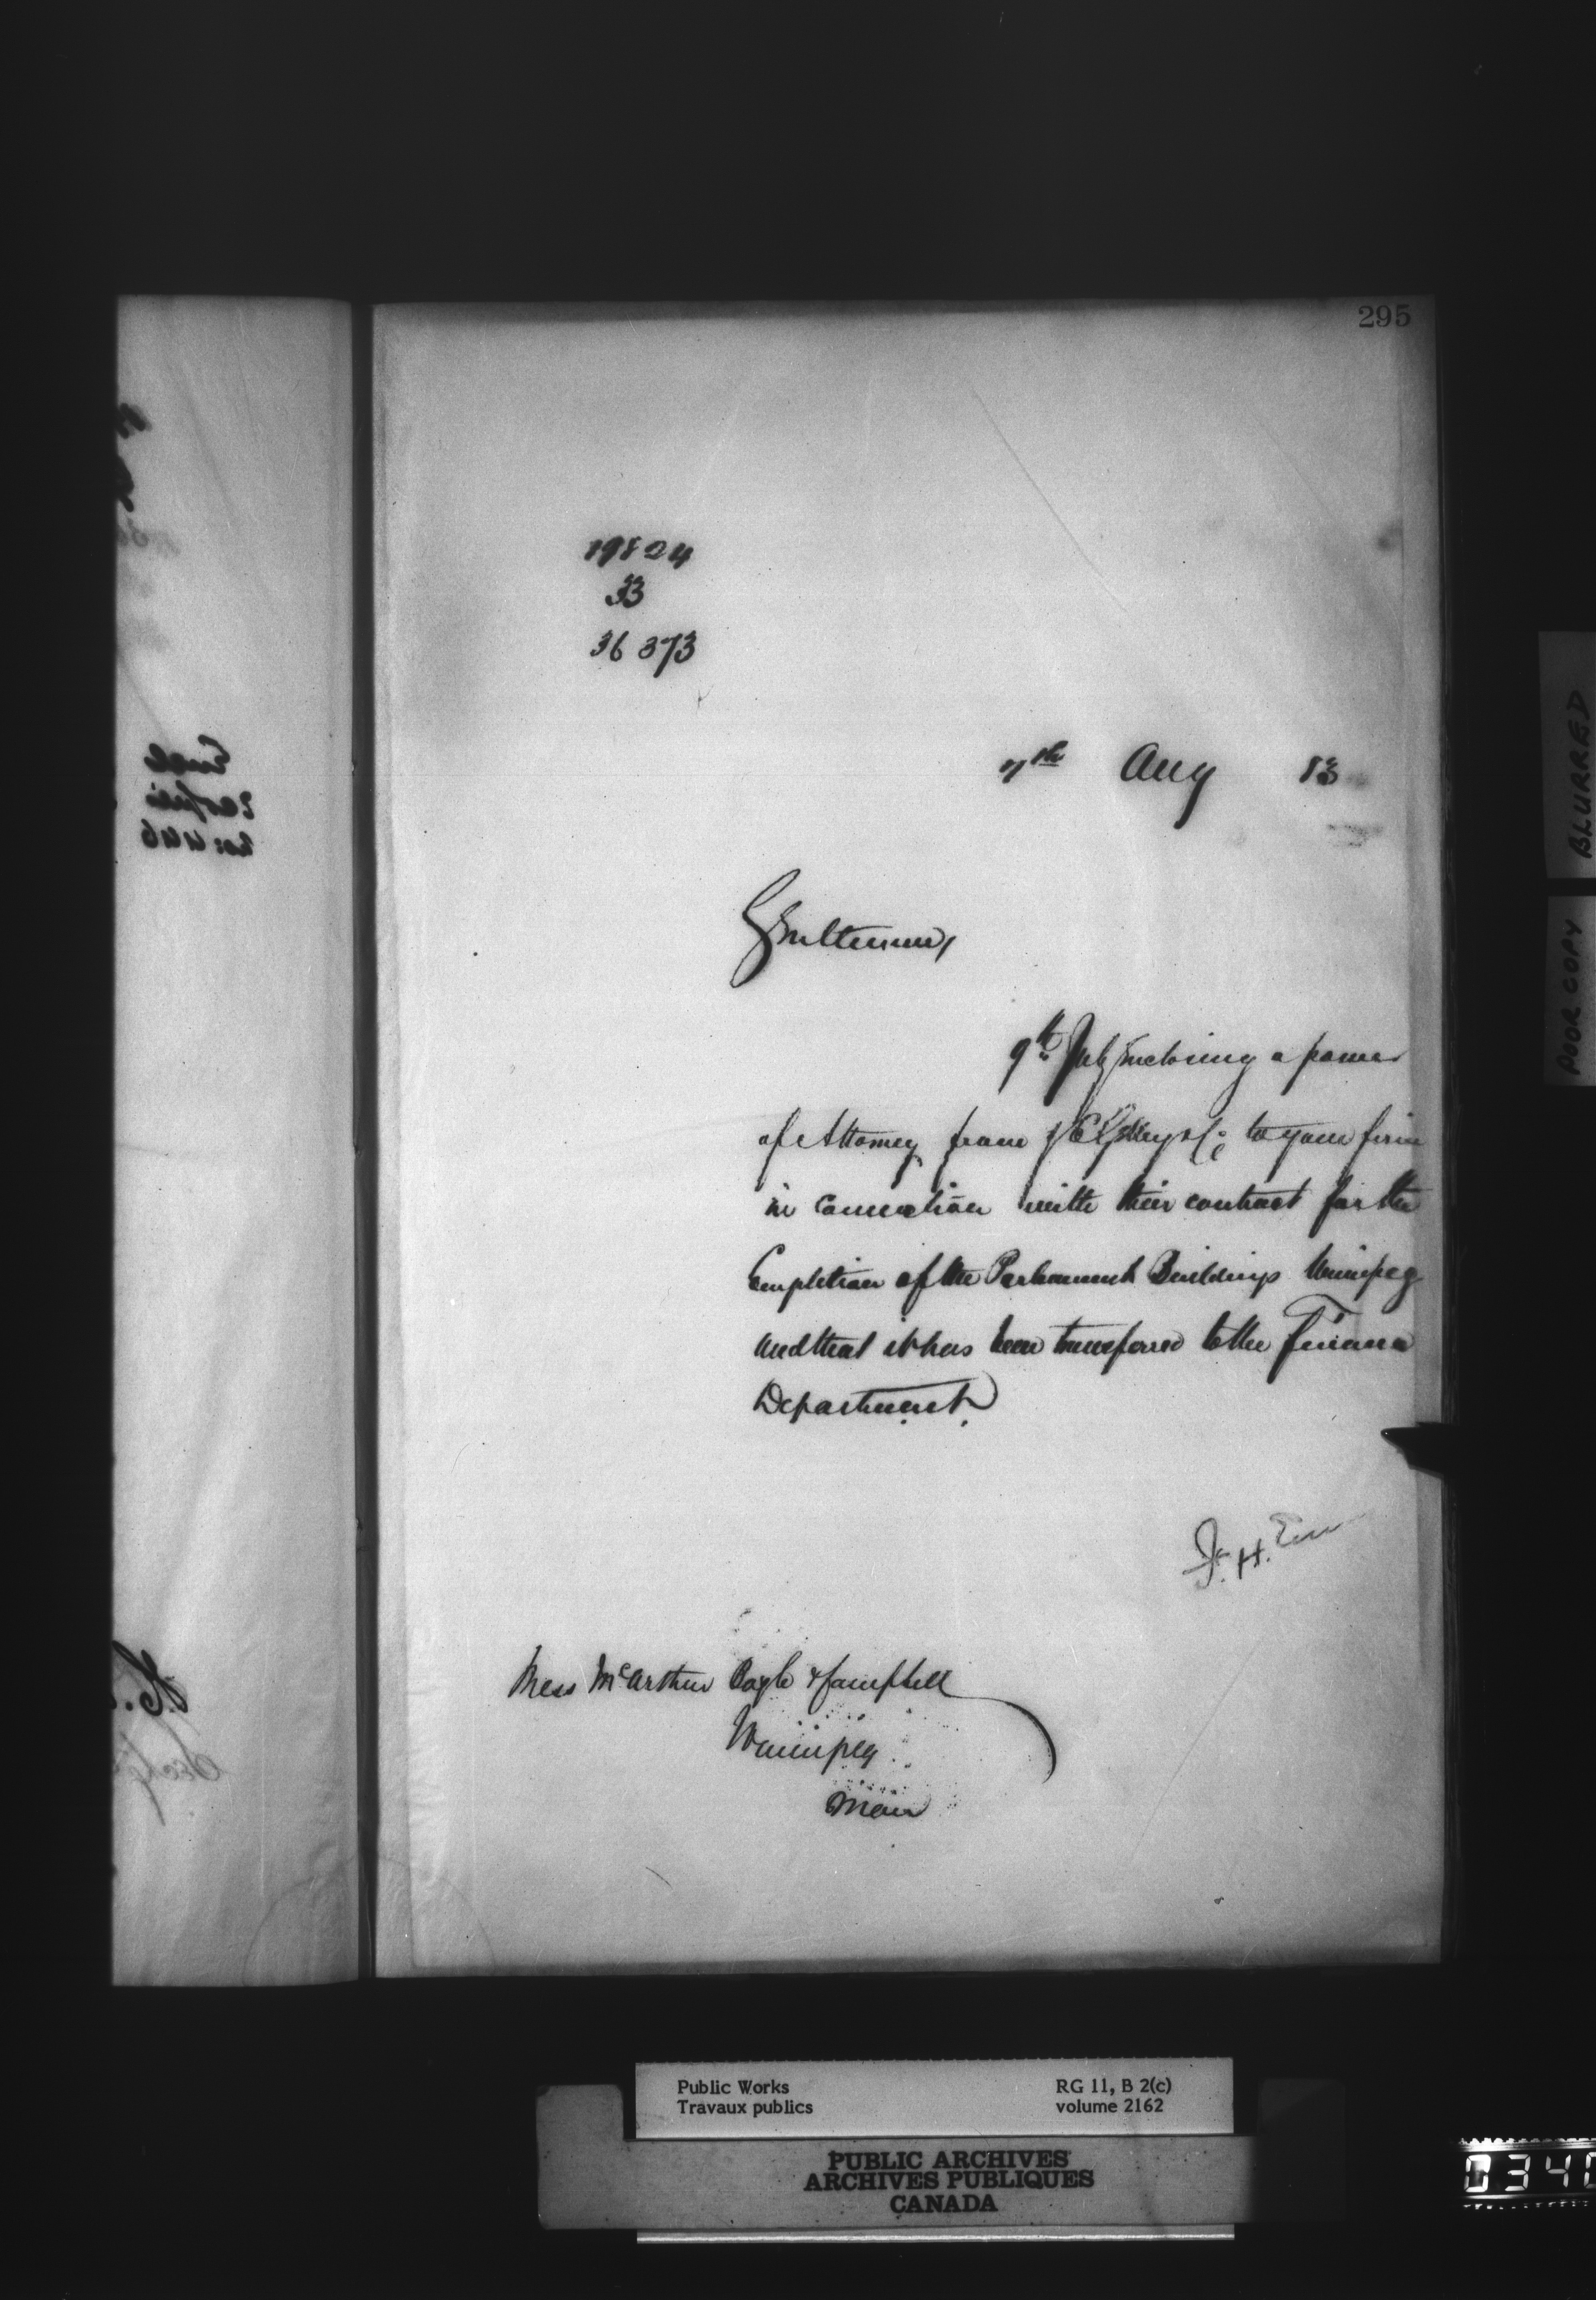 295
19824
33
36373
7th Aug 83
Gentlemen,
9th July Enclosing a power
of Attorney from to your firm
in connection with their contract for the
Completion of the Parliament Buildings Winnipeg
and that it has been transferred to the Finance
Department
F. H. Enn
Mess McArthur Boyle & Campbell
Winnipeg
Man
BLURRED
POOR COPY
Public Works RG 11, B 2(c)
Travaux publics volume 2162
PUBLIC ARCHIVES
ARCHIVES PUBLIQUES
CANADA
0340